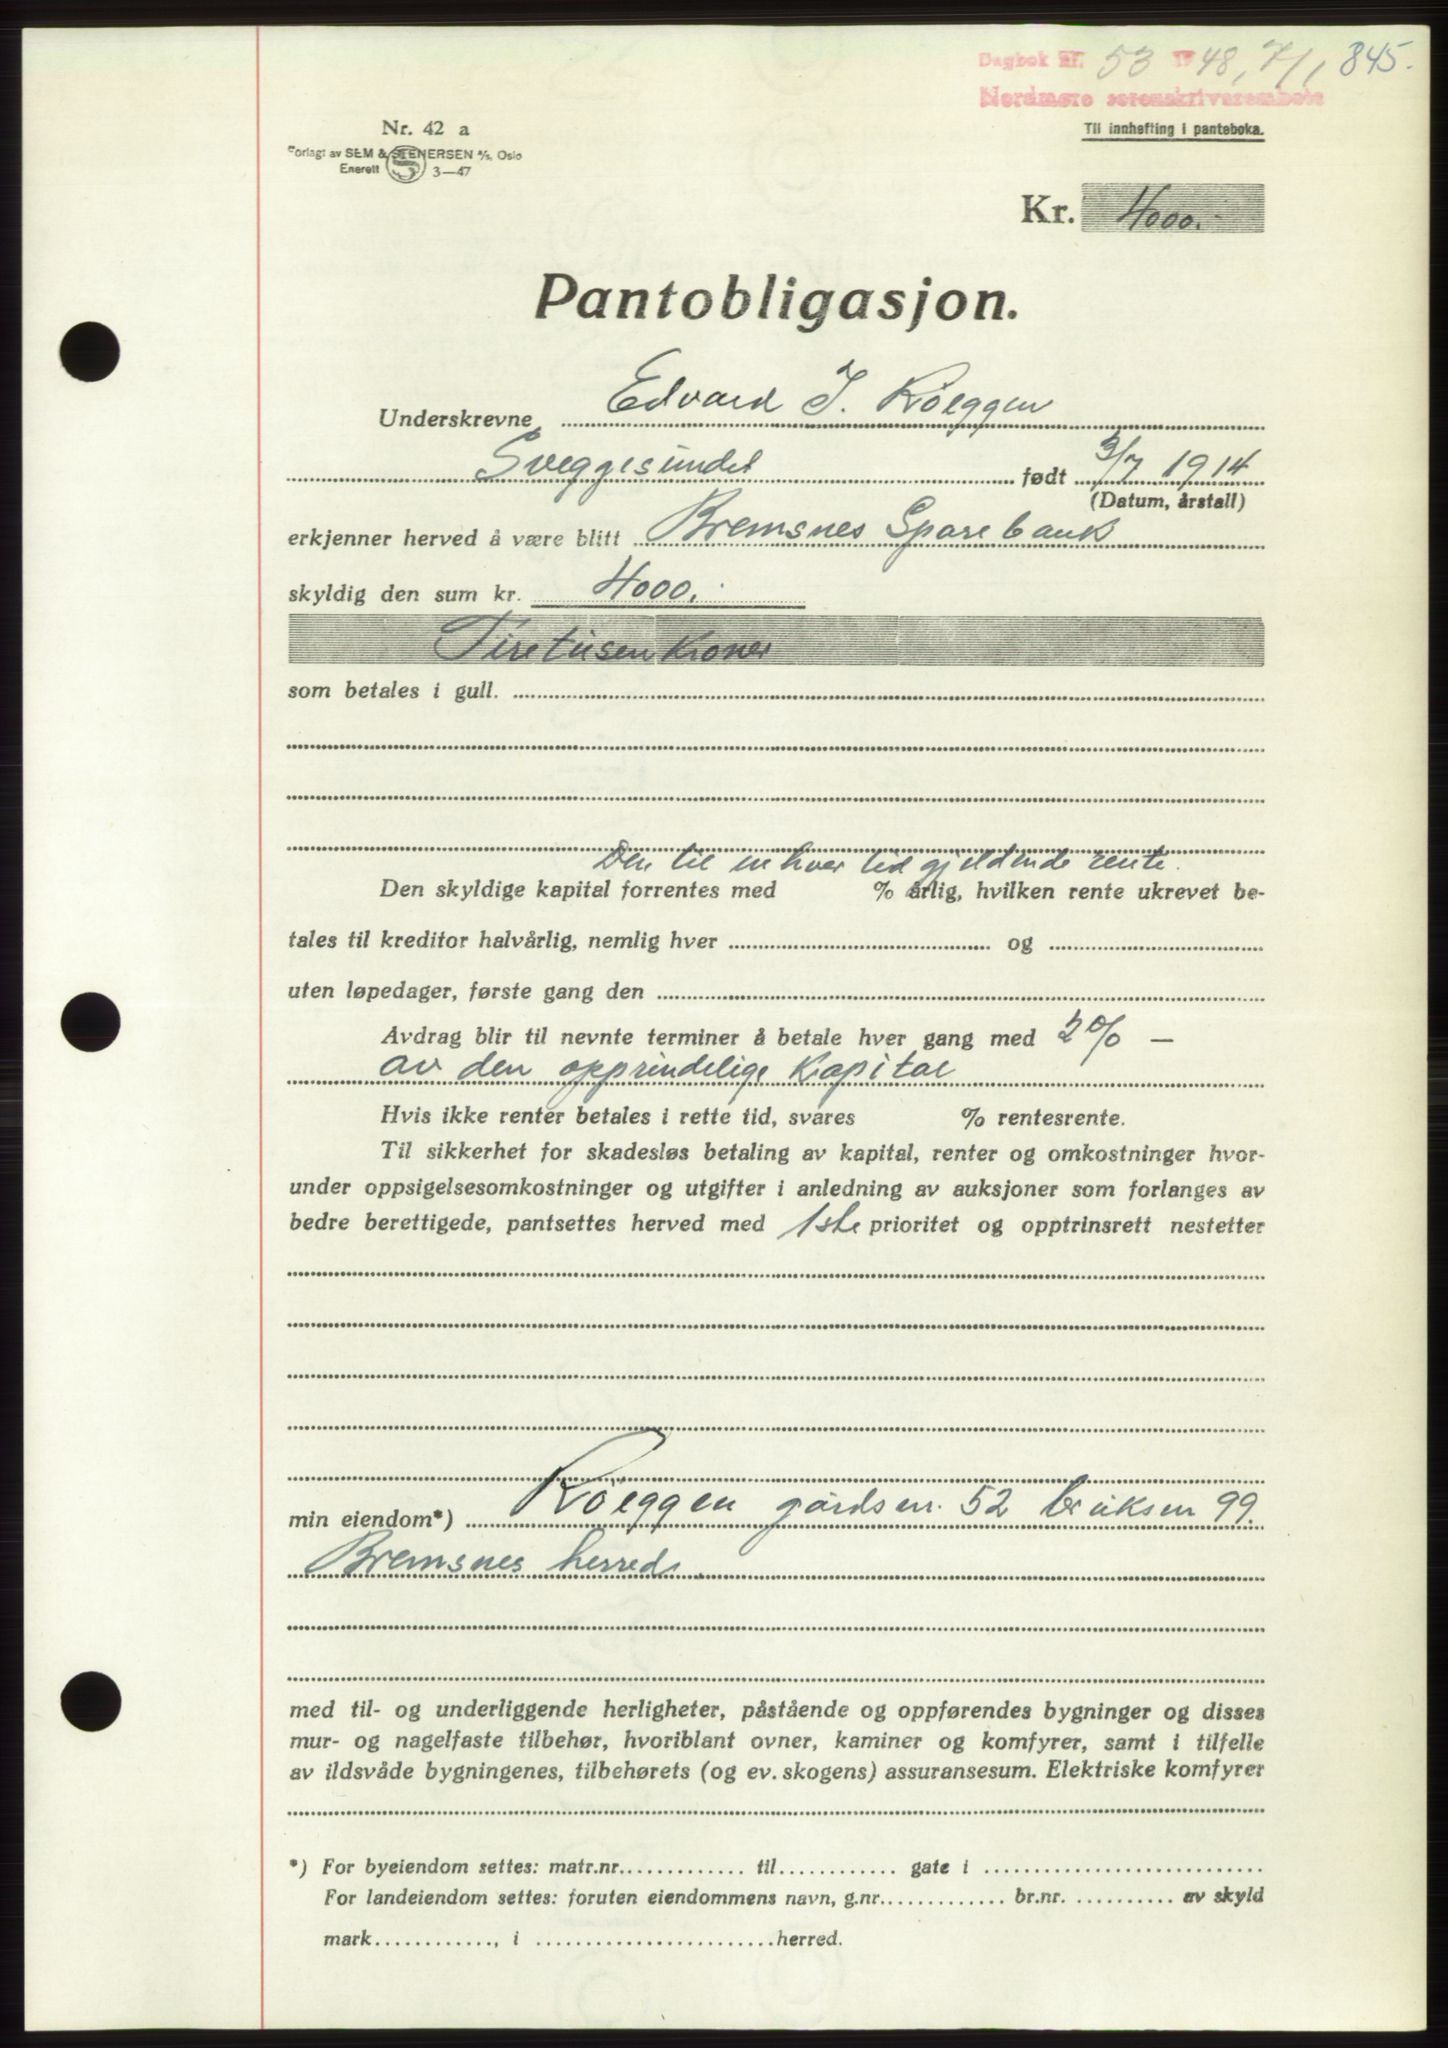 Dagbok nr. 53 19 48, 7/1 845.
Nordmøre sorenskriverembete
Nr. 42 a
Til innhefting i panteboka.
Forlagt av SEM & STENERSEN A/S, Oslo
Enerett S 3—47
Kr. 4000.-
Pantobligasjon.
Underskrevne Edvard J. Röeggen
Sveggesundet født 3/7 1914
(Datum, årstall)
erkjenner herved å være blitt Bremsnes Sparebank
skyldig den sum kr. 4000.-
Firetusen kroner
som betales i gull.
Den til enhver tid gjeldende rente.
Den skyldige kapital forrentes med % årlig, hvilken rente ukrevet be-
tales til kreditor halvårlig, nemlig hver og
uten løpedager, første gang den
Avdrag blir til nevnte terminer å betale hver gang med 2% —
av den opprindelige Kapital
Hvis ikke renter betales i rette tid, svares % rentesrente.
Til sikkerhet for skadesløs betaling av kapital, renter og omkostninger hvor-
under oppsigelsesomkostninger og utgifter i anledning av auksjoner som forlanges av
bedre berettigede, pantsettes herved med 1ste prioritet og opptrinsrett nestetter
min eiendom*) Röeggen gårdsnr. 52 bruksnr 99.
Bremsnes herred.
med til- og underliggende herligheter, påstående og oppførendes bygninger og disses
mur- og nagelfaste tilbehør, hvoriblant ovner, kaminer og komfyrer, samt i tilfelle
av ildsvåde bygningenes, tilbehørets (og ev. skogens) assuransesum. Elektriske komfyrer
*) For byeiendom settes: matr.nr. til gate i
For landeiendom settes: foruten eiendommens navn, g.nr. br.nr. av skyld
mark , i herred.